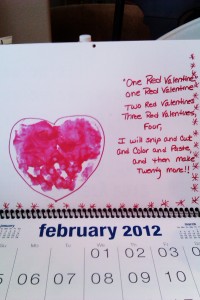 "One Red Valentine
one Red Valentine
Two Red Valentines
Three Red Valentines,
Four,
I will snip and Cut
and Color and Paste,
and then make
Twenty more!!
february 2012
01 02 03
05 06 07 08 09 10